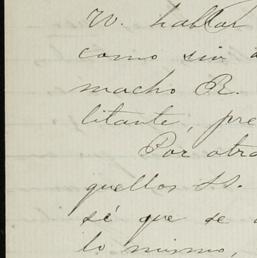 W. hablar
como sin
macho R.
litante, pre
Por otra
quellos SS.
sé que se
lo mismo,